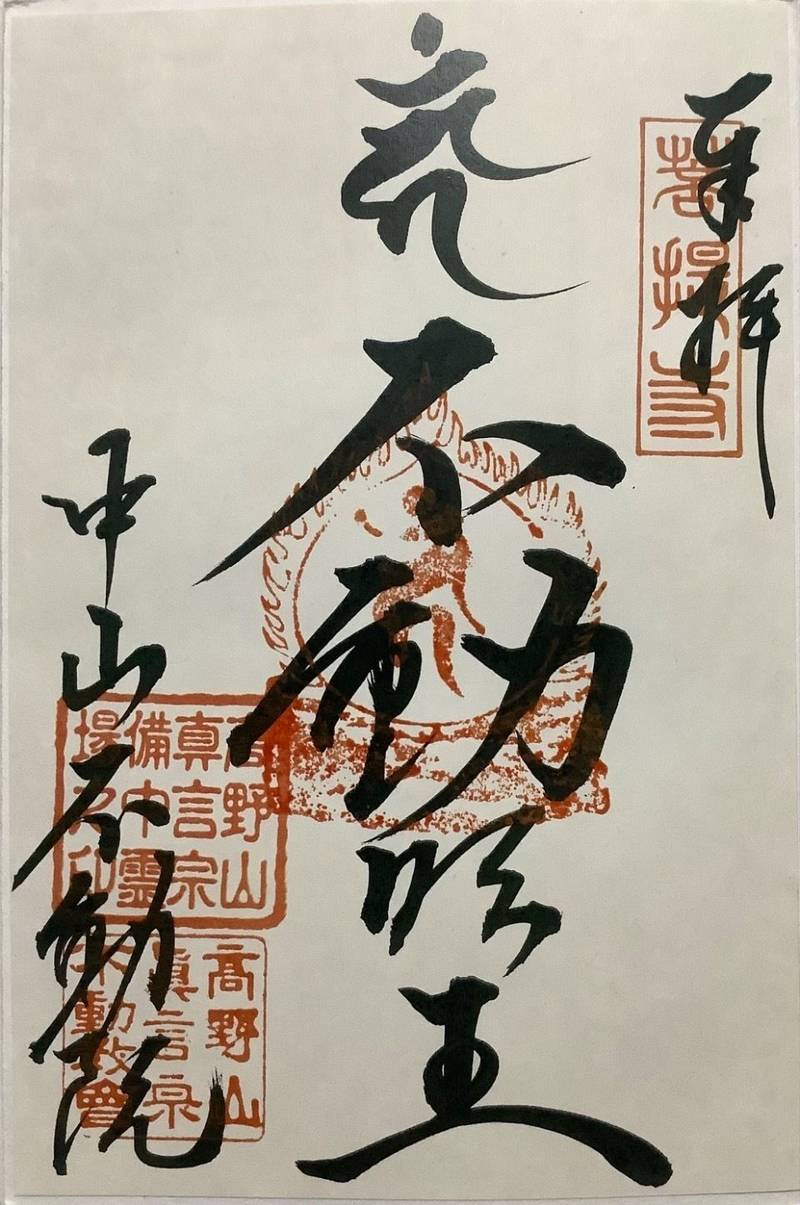 奉拝
不動明王
中山不動院
高野山
真言宗
備中霊
場之印
高野山
真言宗
不動教會